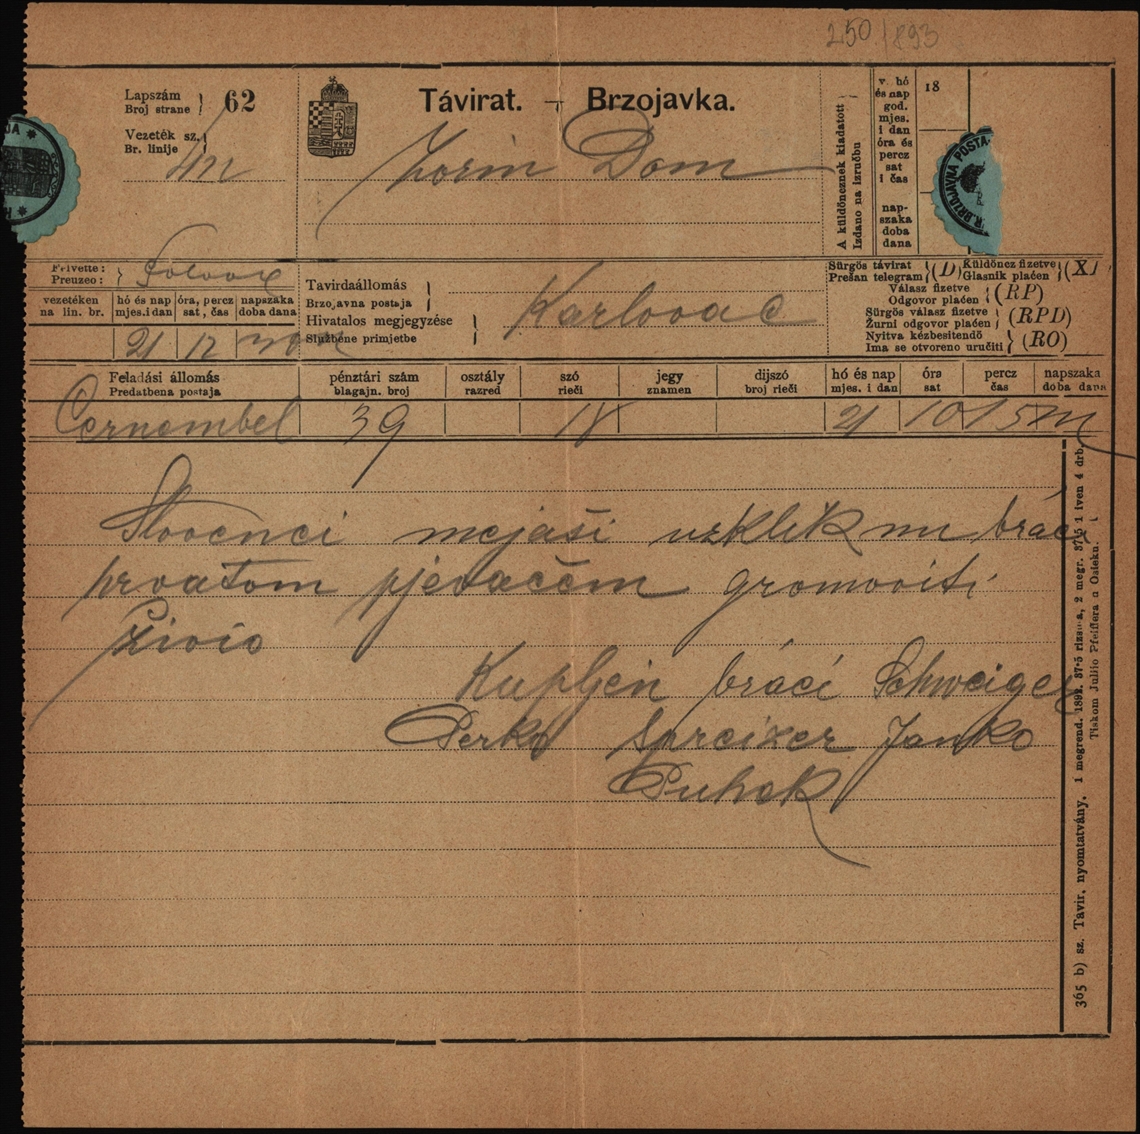 250/893
Lapszám
Broj strane } 62
Vezeték sz.
Br. linije }
Távirat. – Brzojavka.
Zorin Dom
A küldöncznek kiadatott
Izdano na izručbu
v hó
és nap
god.
mjes.
i dan
óra és
percz
sat
i čas
nap-
szaka
doba
dana
18
R. BRZOJAVNA POSTA
Felvette:
Preuzeo: }
vezetéken
na lin. br.
hó és nap
mjes. i dan
óra, percz
sat, čas
napszaka
doba dana
21 12
Tavirdaállomás
Brzojavna postaja }
Hivatalos megjegyzése
Službéne primjetbe }
Karlovac
Sürgös távirat
Prešan telegram } (D)
Küldöncz fizetve
Glasnik plaćen } (X)
Válasz fizetve
Odgovor plaćen } (RP)
Sürgös válasz fizetve
Žurni odgovor plaćen } (RPD)
Nyitva kézbesitendö
Ima se otvoreno uručiti } (RO)
Feladási állomás
Predatbena postaja
pénztári szám
blagajn. broj
osztály
razred
szó
rieči
jegy
znamen
díjszó
broj rieči
hó és nap
mjes. i dan
óra
sat
percz
čas
napszaka
doba dana
Černembel 39 18 21 10 15 m
Slovenci mejaši usklik nu braći
hrvatom pjevačem gromoviti
živio
Kupljen braći Schweiger
Perko Janko
Puhek
365 b) sz. Tavir. nyomtatvány. 1 megrend. 1892. 37·5 rizsma, 2 megr. 37·5 1 iven 4 drb.
Tiskom Julio Pfeiffera u Osieku.